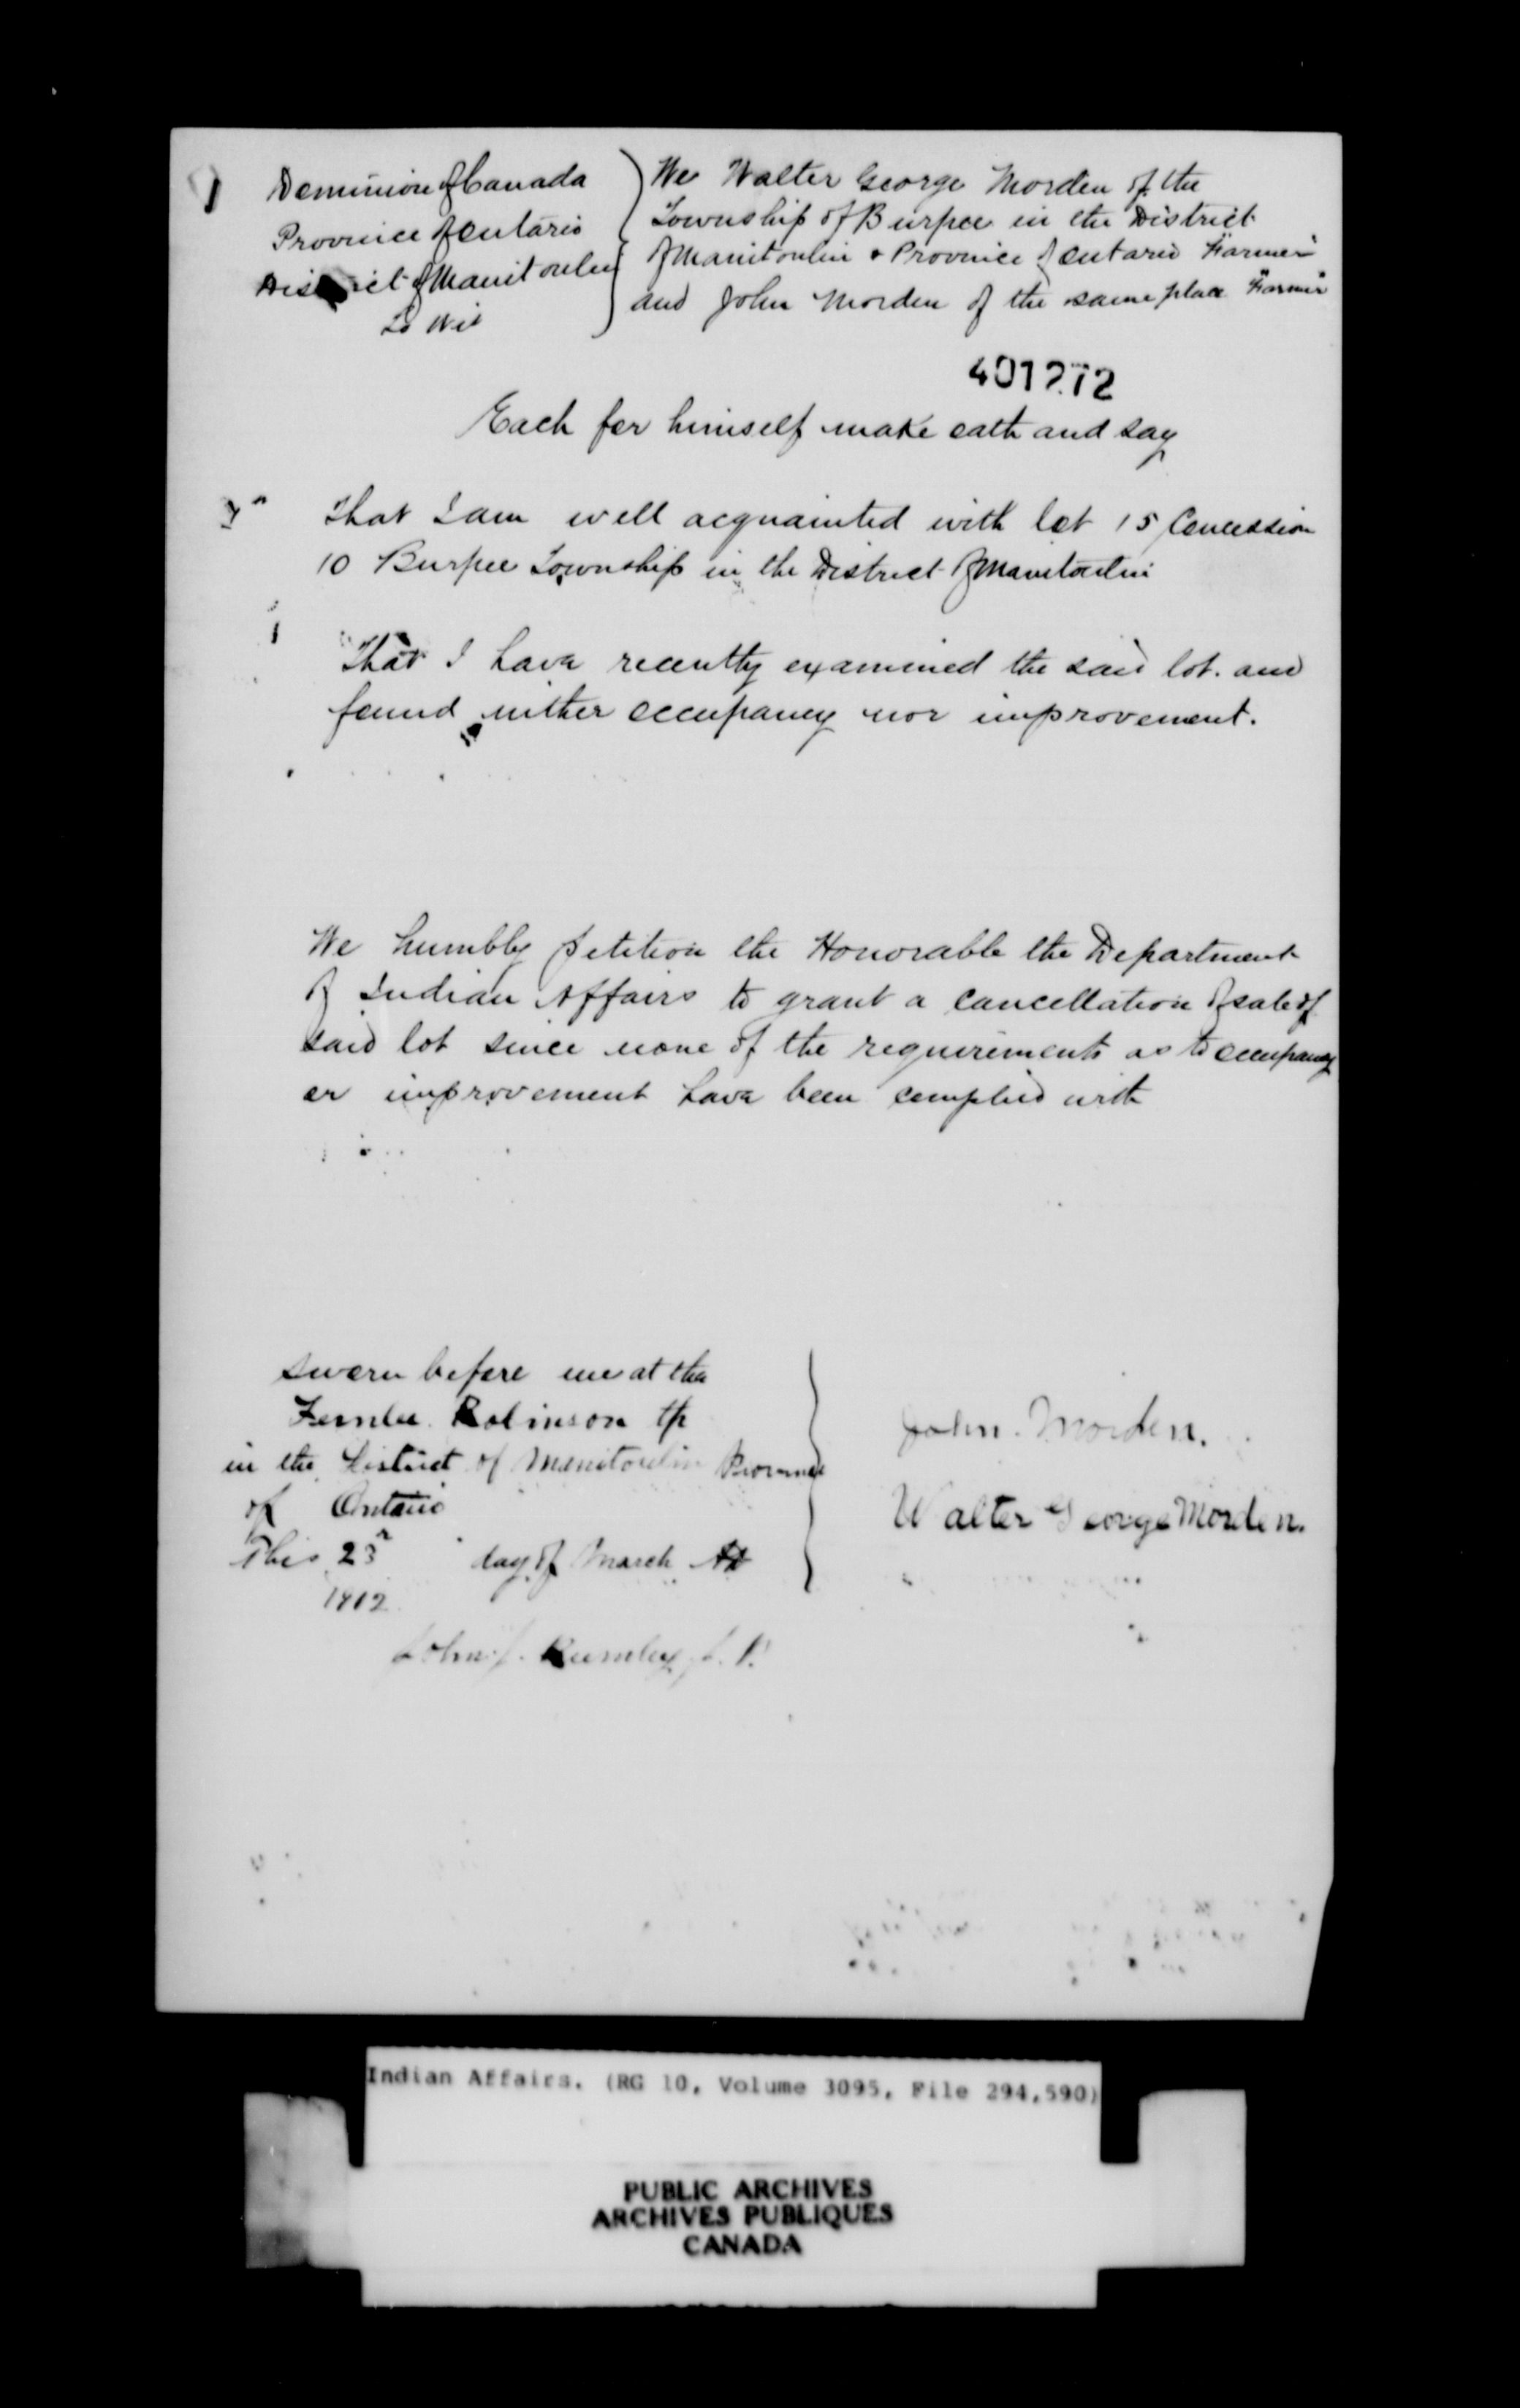 Dominion of Canada
Province of Ontario
District of Manitoulin
To Wit
We Walter George Morden of the
Township of Burpee in the District
of Manitoulin & Province of Ontario "Farmer"
and John Morden of the same place "Farmer"
401272
Each for himself make oath and say
That I am well acquainted with lot 15 Concession
10 Burpee Township in the District of Manitoulin
That I have recently examined the said lot. and
found neither occupancy nor improvement.
We humbly petition the Honorable the Department
of Indian Affairs to grant a cancellation of sale of
said lot since none of the requirements as to occupancy
or improvement have been complied with
Sworn before me at the
Robinson tp
in the District of Manitoulin Province
of Ontario
This 25 day of March AD
1912
John J. Rumley J. P.
John. Morden.
Walter George Morden.
Indian Affairs. (RG 10, Volume 3095, File 294,590)
PUBLIC ARCHIVES
ARCHIVES PUBLIQUES
CANADA